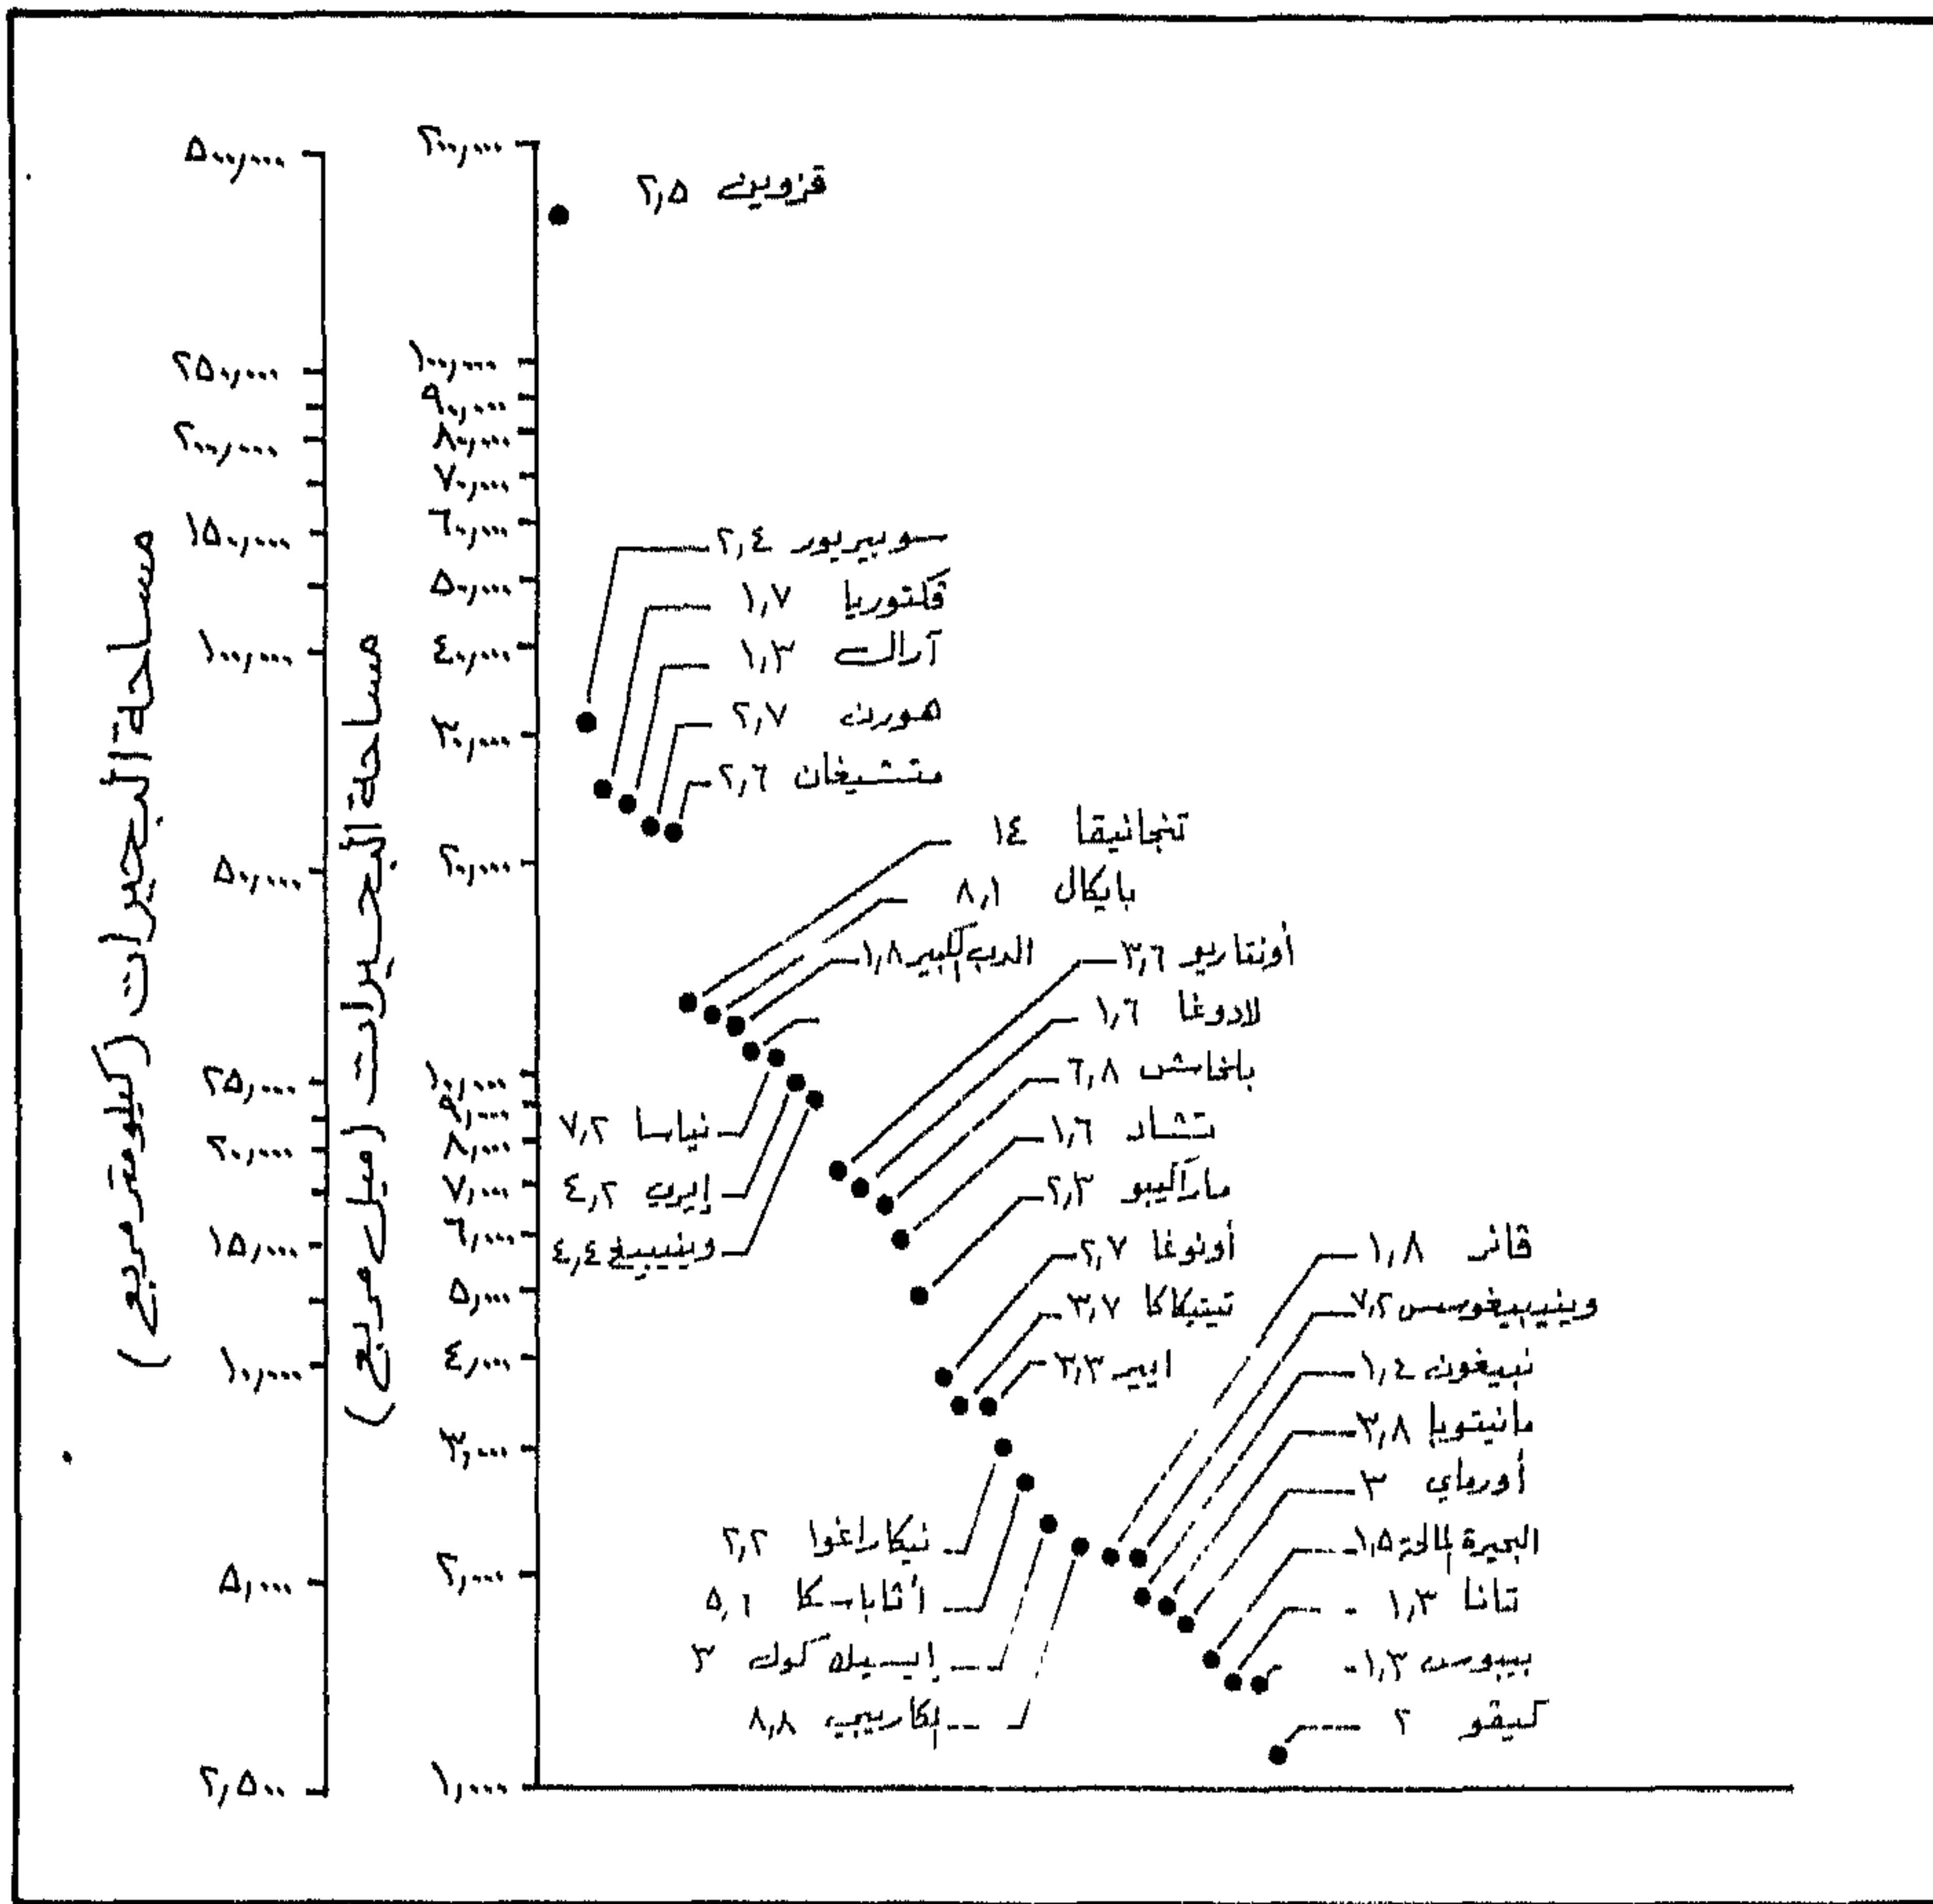 مساحة البحيرات (كيلومتر مربع)
٥٠٠,٠٠٠
٢٥٠,٠٠٠
٢٠٠,٠٠٠
١٥٠,٠٠٠
١٠٠,٠٠٠
٥٠,٠٠٠
٢٥,٠٠٠
٢٠,٠٠٠
١٥,٠٠٠
١٠,٠٠٠
٥,٠٠٠
٢,٥٠٠
مساحة البحيرات (ميل مربع)
٢٠٠,٠٠٠
١٠٠,٠٠٠
٩٠,٠٠٠
٨٠,٠٠٠
٧٠,٠٠٠
٦٠,٠٠٠
٥٠,٠٠٠
٤٠,٠٠٠
٣٠,٠٠٠
٢٠,٠٠٠
١٠,٠٠٠
٩,٠٠٠
٨,٠٠٠
٧,٠٠٠
٦,٠٠٠
٥,٠٠٠
٤,٠٠٠
٣,٠٠٠
٢,٠٠٠
١,٠٠٠
قزوين ٢,٥
سوبيريور ٢,٤
ڤكتوريا ١,٧
آرال ١,٣
هورن ٢,٧
متشيغان ٢,٦
تنجانيقا ١٤
بايكال ٨,١
الدب الكبير ١,٨
نياسا ٧,٢
إيري ٤,٢
وينيبيغ ٤,٤
أونتاريو ٣,٦
لادوغا ١,٦
بلخاش ٦,٨
تشاد ١,٦
ماراكيبو ٢,٣
أونوغا ٢,٧
تيتيكاكا ٣,٧
ايير ٣,٣
نيكاراغوا ٢,٢
أثاباسكا ٥,٦
إيسيك كول ٣
الكاريبي ٨,٨
فانر ١,٨
وينيبيغوسس ٧,٢
نيبيغون ١,٤
مانيتوبا ٣,٨
أورماي ٣
البحيرة المالحة ١,٥
تانا ١,٣
بيبوس ١,٣
كيفو ٢